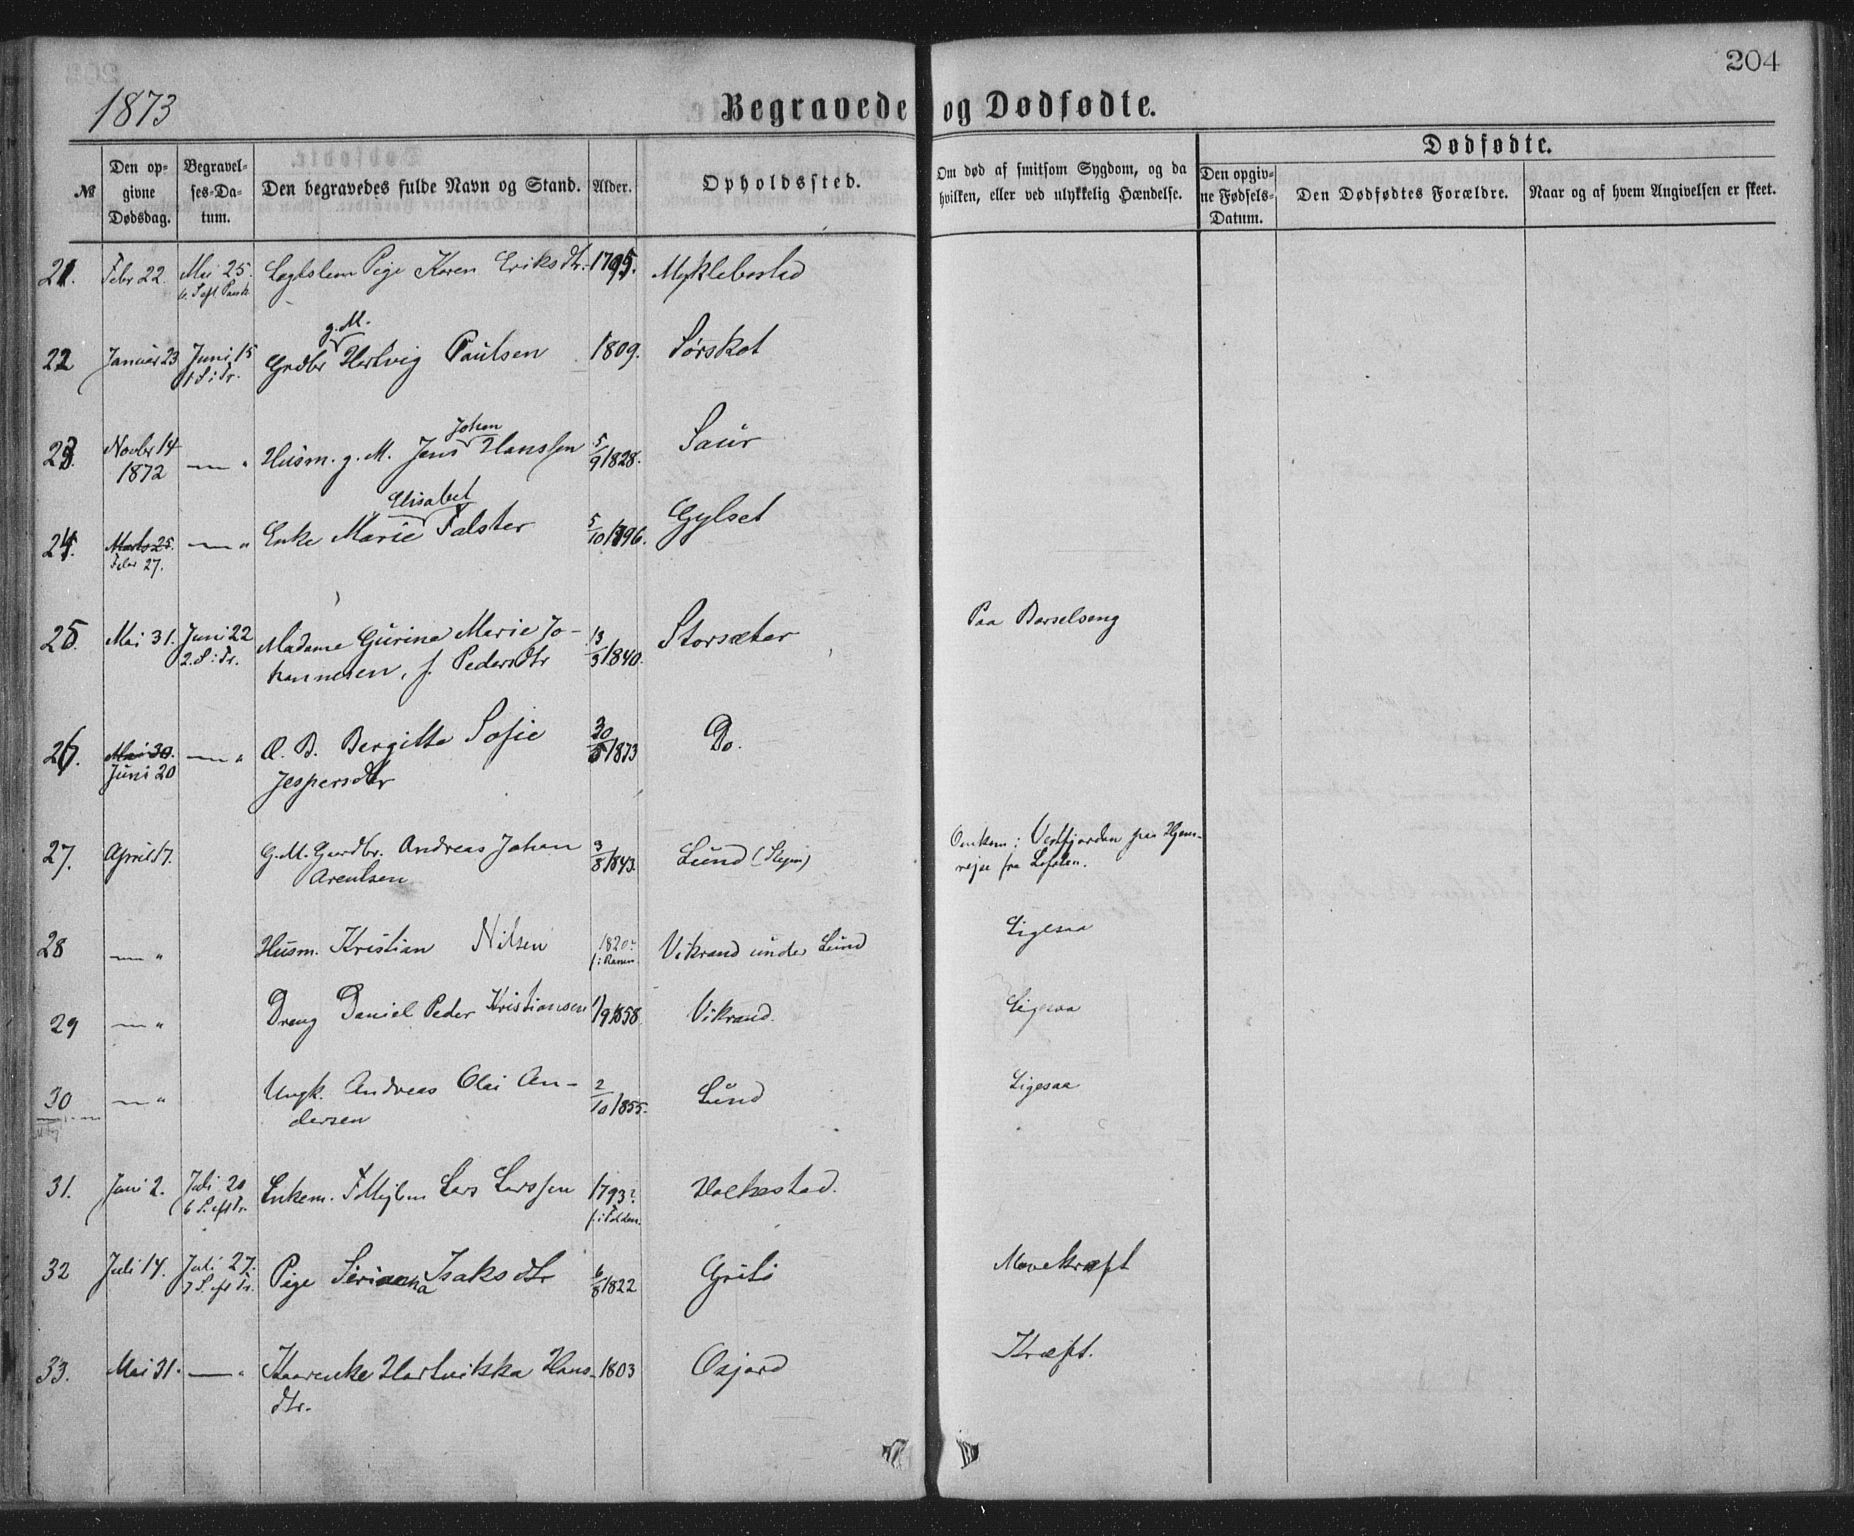 204
1873
Begravede og Dødfødte.
№
Den opgivne Dødsdag.
Begravelses-Datum.
Den begravedes fulde Navn og Stand.
Alder.
Opholdssted.
Om død af smitsom Sygdom, og da hvilken, eller ved ulykkelig Hændelse.
Dødfødte.
Den opgivne Fødsels-Datum.
Den Dødfødtes Forældre.
Naar og af hvem Angivelsen er skeet.
21. Febr 22. Mai 25. Pige Karen Eriksdtr. 1795. Myklebostad
6. S. eft Paask
g. M.
22 Januar 23 Juni 15 Grdbr Hartvig Paulsen 1809. Sørskot
1 S. i Tr.
Johan
23. Novbr 14 1872 — " Husm. g. M. Jens Hanssen 5/9 1828. Saur
Elisabet
24. Marts 25. — " Enke Marie Falster 5/10 1796. Gylset
Febr 27.
25 Mai 31. Juni 22 Madame Gurine Marie Jo- 13/3 1840. Storsæter Paa Barselseng
2. S. i Tr. hannesen, f. Pedersdtr
26. Mai 30. — " Æ. B. Bergitte Sofie 30/5 1873 Do.
Juni 20 Jespersdtr
27. April 17. G. M. Gaardbr. Andreas Johan 3/8 1843. Lund (Stejn) Omkom i Vestfjorden paa Hjem-
Arentsen rejse fra Lofoten.
28 — " Husm. Kristian Nilsen 1820? Vikrand under Lund Ligesaa
f. i Ranen
29 — " Dreng Daniel Peder Kristiansen 1/9 1858 Vikrand. Ligesaa
30 — " Ungk. Andreas Olai An- 2/10 1855. Lund Ligesaa
dersen
31. Juni 2. Juli 20 Enkem. Lars Larssen 1793? Valkestad.
6 S. eft Tr. f. i Folden.
32 Juli 14. Juli 27. Pige Serianna Isaksdtr 6/8 1822 Mavekræft
7 S. eft Tr.
33. Mai 31. — " Kaarenke Hartvikka Hans- 1803 Osjord Kræft.
dtr.